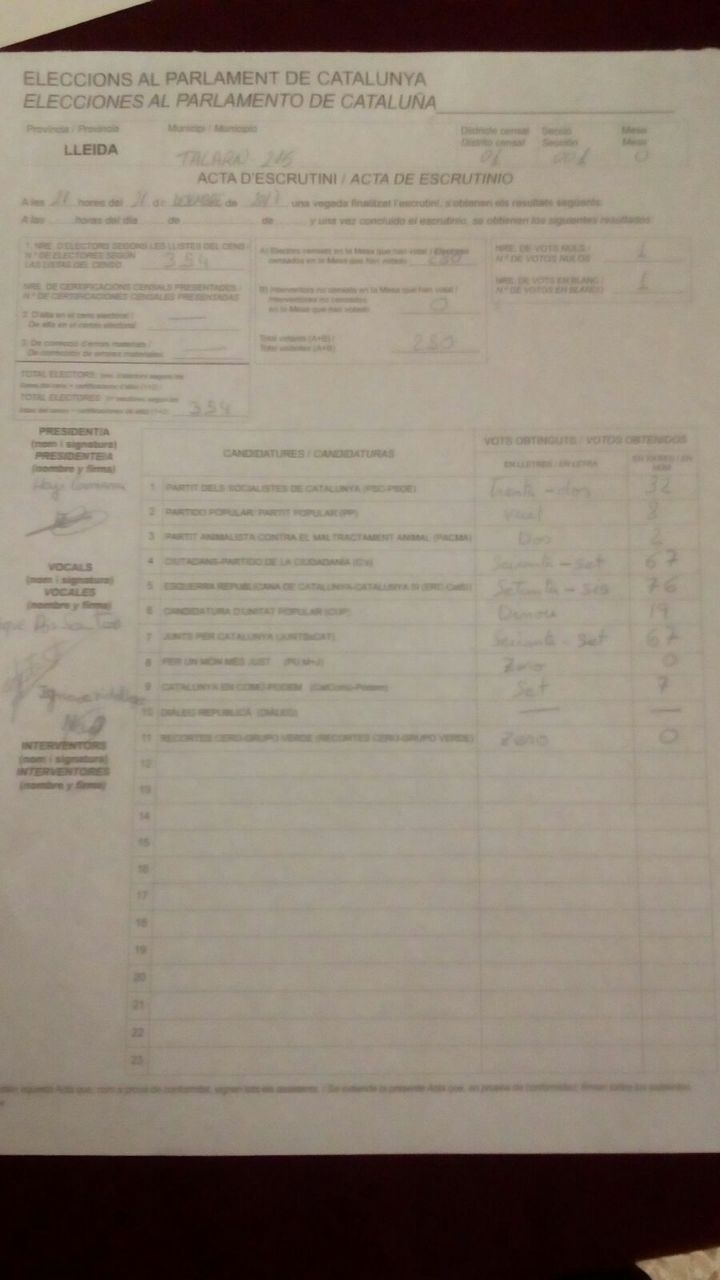 ELECCIONS AL PARLAMENT DE CATALUNYA
ELECCIONES AL PARLAMENTO DE CATALUÑA
Província / Provincia Municipi / Municipio Districte censal Secció Mesa
Distrito censal Sección Mesa
LLEIDA TALARN 215 01 001 0
ACTA D'ESCRUTINI / ACTA DE ESCRUTINIO
A les 21 hores del 21 de de 2017, una vegada finalitzat l'escrutini, s'obtenen els resultats següents:
A las horas del día de de y una vez concluido el escrutinio, se obtienen los siguientes resultados:
1. NRE. D'ELECTORS SEGONS LES LLISTES DEL CENS /
N.º DE ELECTORES SEGÚN
LAS LISTAS DEL CENSO 354
NRE. DE CERTIFICACIONS CENSALS PRESENTADES /
N.º DE CERTIFICACIONES CENSALES PRESENTADAS
2. D'alta en el cens electoral /
De alta en el censo electoral —
3. De correcció d'errors materials /
De corrección de errores materiales —
TOTAL ELECTORS:
TOTAL ELECTORES: 354
A) Electors censats en la Mesa que han votat / Electores
censados en la Mesa que han votado 280
B) Interventors no censats en la Mesa que han votat /
Interventores no censados
en la Mesa que han votado 0
Total votants (A+B) /
Total votantes (A+B) 280
NRE. DE VOTS NULS /
N.º DE VOTOS NULOS 1
NRE. DE VOTS EN BLANC /
N.º DE VOTOS EN BLANCO 1
PRESIDENT/A
(nom i signatura)
PRESIDENTE/A
(nombre y firma)
VOCALS
(nom i signatura)
VOCALES
(nombre y firma)
INTERVENTORS
(nom i signatura)
INTERVENTORES
(nombre y firma)
CANDIDATURES / CANDIDATURAS VOTS OBTINGUTS / VOTOS OBTENIDOS
EN LLETRES / EN LETRA EN XIFRES / EN NÚM.
1 PARTIT DELS SOCIALISTES DE CATALUNYA (PSC-PSOE) trenta-dos 32
2 PARTIDO POPULAR/ PARTIT POPULAR (PP) vuit 8
3 PARTIT ANIMALISTA CONTRA EL MALTRACTAMENT ANIMAL (PACMA) Dos 2
4 CIUTADANS-PARTIDO DE LA CIUDADANÍA (C's) Seixanta-set 67
5 ESQUERRA REPUBLICANA DE CATALUNYA-CATALUNYA SÍ (ERC-CatSí) Setanta-sis 76
6 CANDIDATURA D'UNITAT POPULAR (CUP) Dinou 19
7 JUNTS PER CATALUNYA (JUNTSxCAT) Seixanta-set 67
8 PER UN MÓN MÉS JUST (PUM+J) Zero 0
9 CATALUNYA EN COMÚ-PODEM (CatComú-Podem) Set 7
10 DIÀLEG REPUBLICÀ (DIÀLEG) — —
11 RECORTES CERO-GRUPO VERDE (RECORTES CERO-GRUPO VERDE) Zero 0
12
13
14
15
16
17
18
19
20
21
22
23
aquesta Acta que, com a prova de conformitat, signen tots els assistents. / Se extiende la presente Acta que, en prueba de conformidad, firman todos los asistentes.